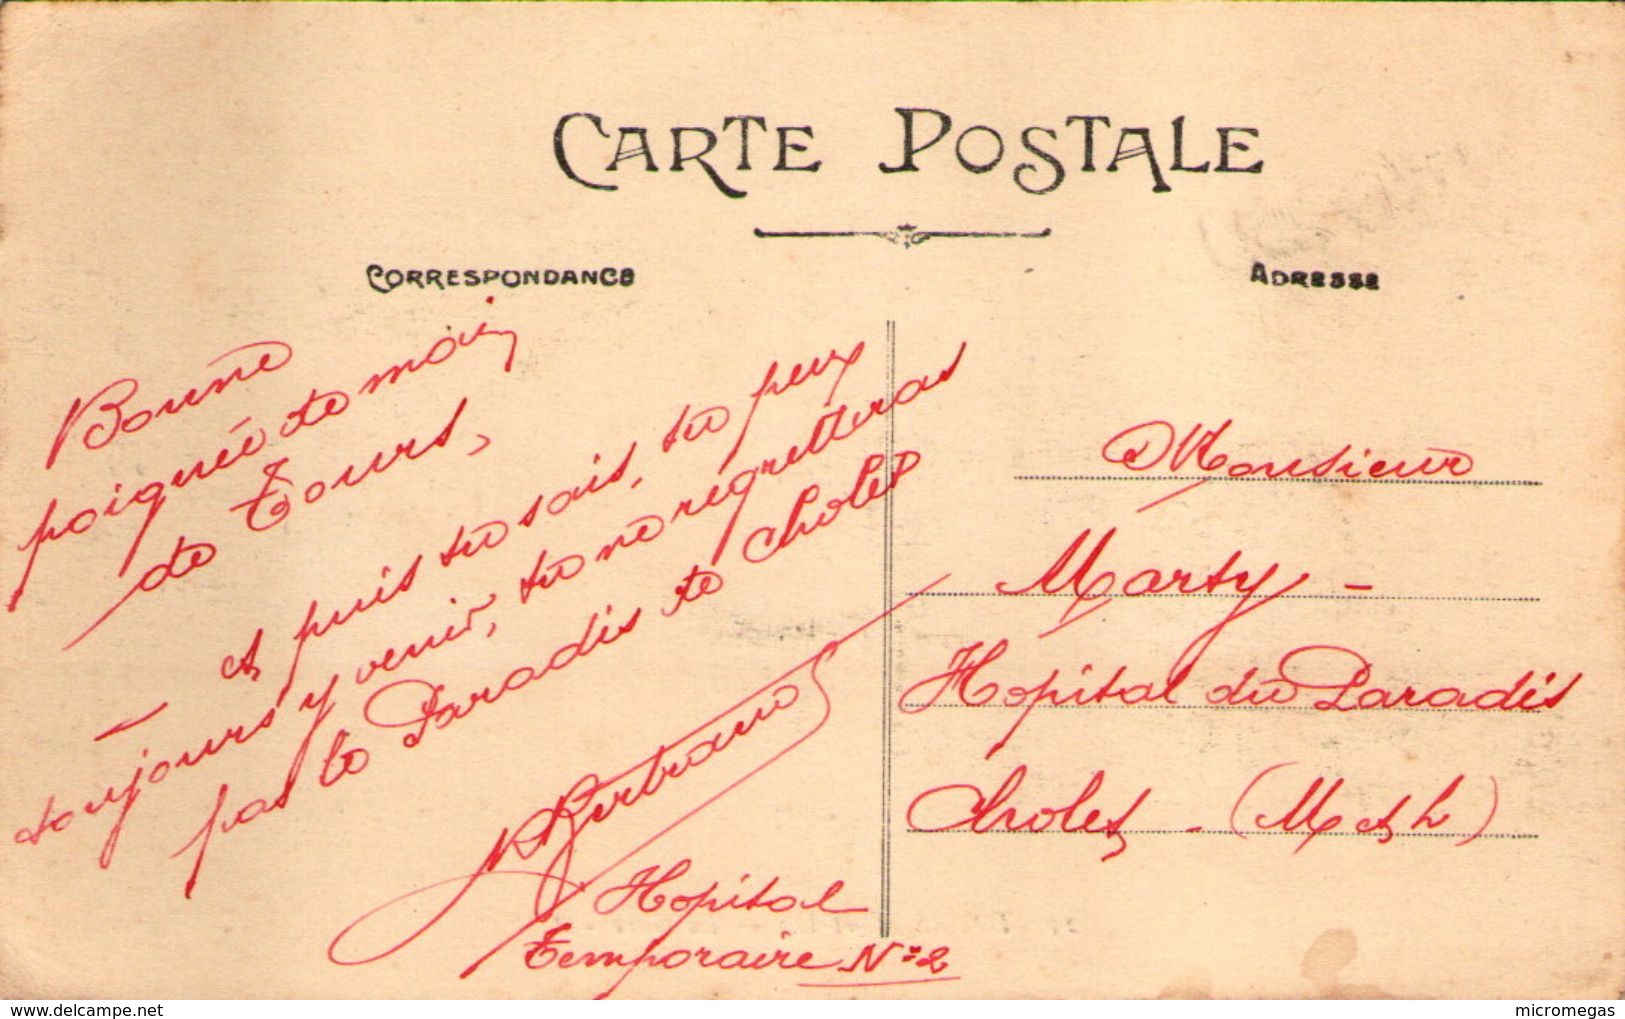 CARTE POSTALE
CORRESPONDANCE
ADRESSE
Bonne
poignée de main
de Tours,
– et puis tu sais, tu peux
toujours y venir, tu ne regretteras
pas le Paradis de Cholet
Bertrand
Hopital
Temporaire N° 2
Monsieur
Marty –
Hopital du Paradis
Cholet – (M et L)
www.delcampe.net
micromegas